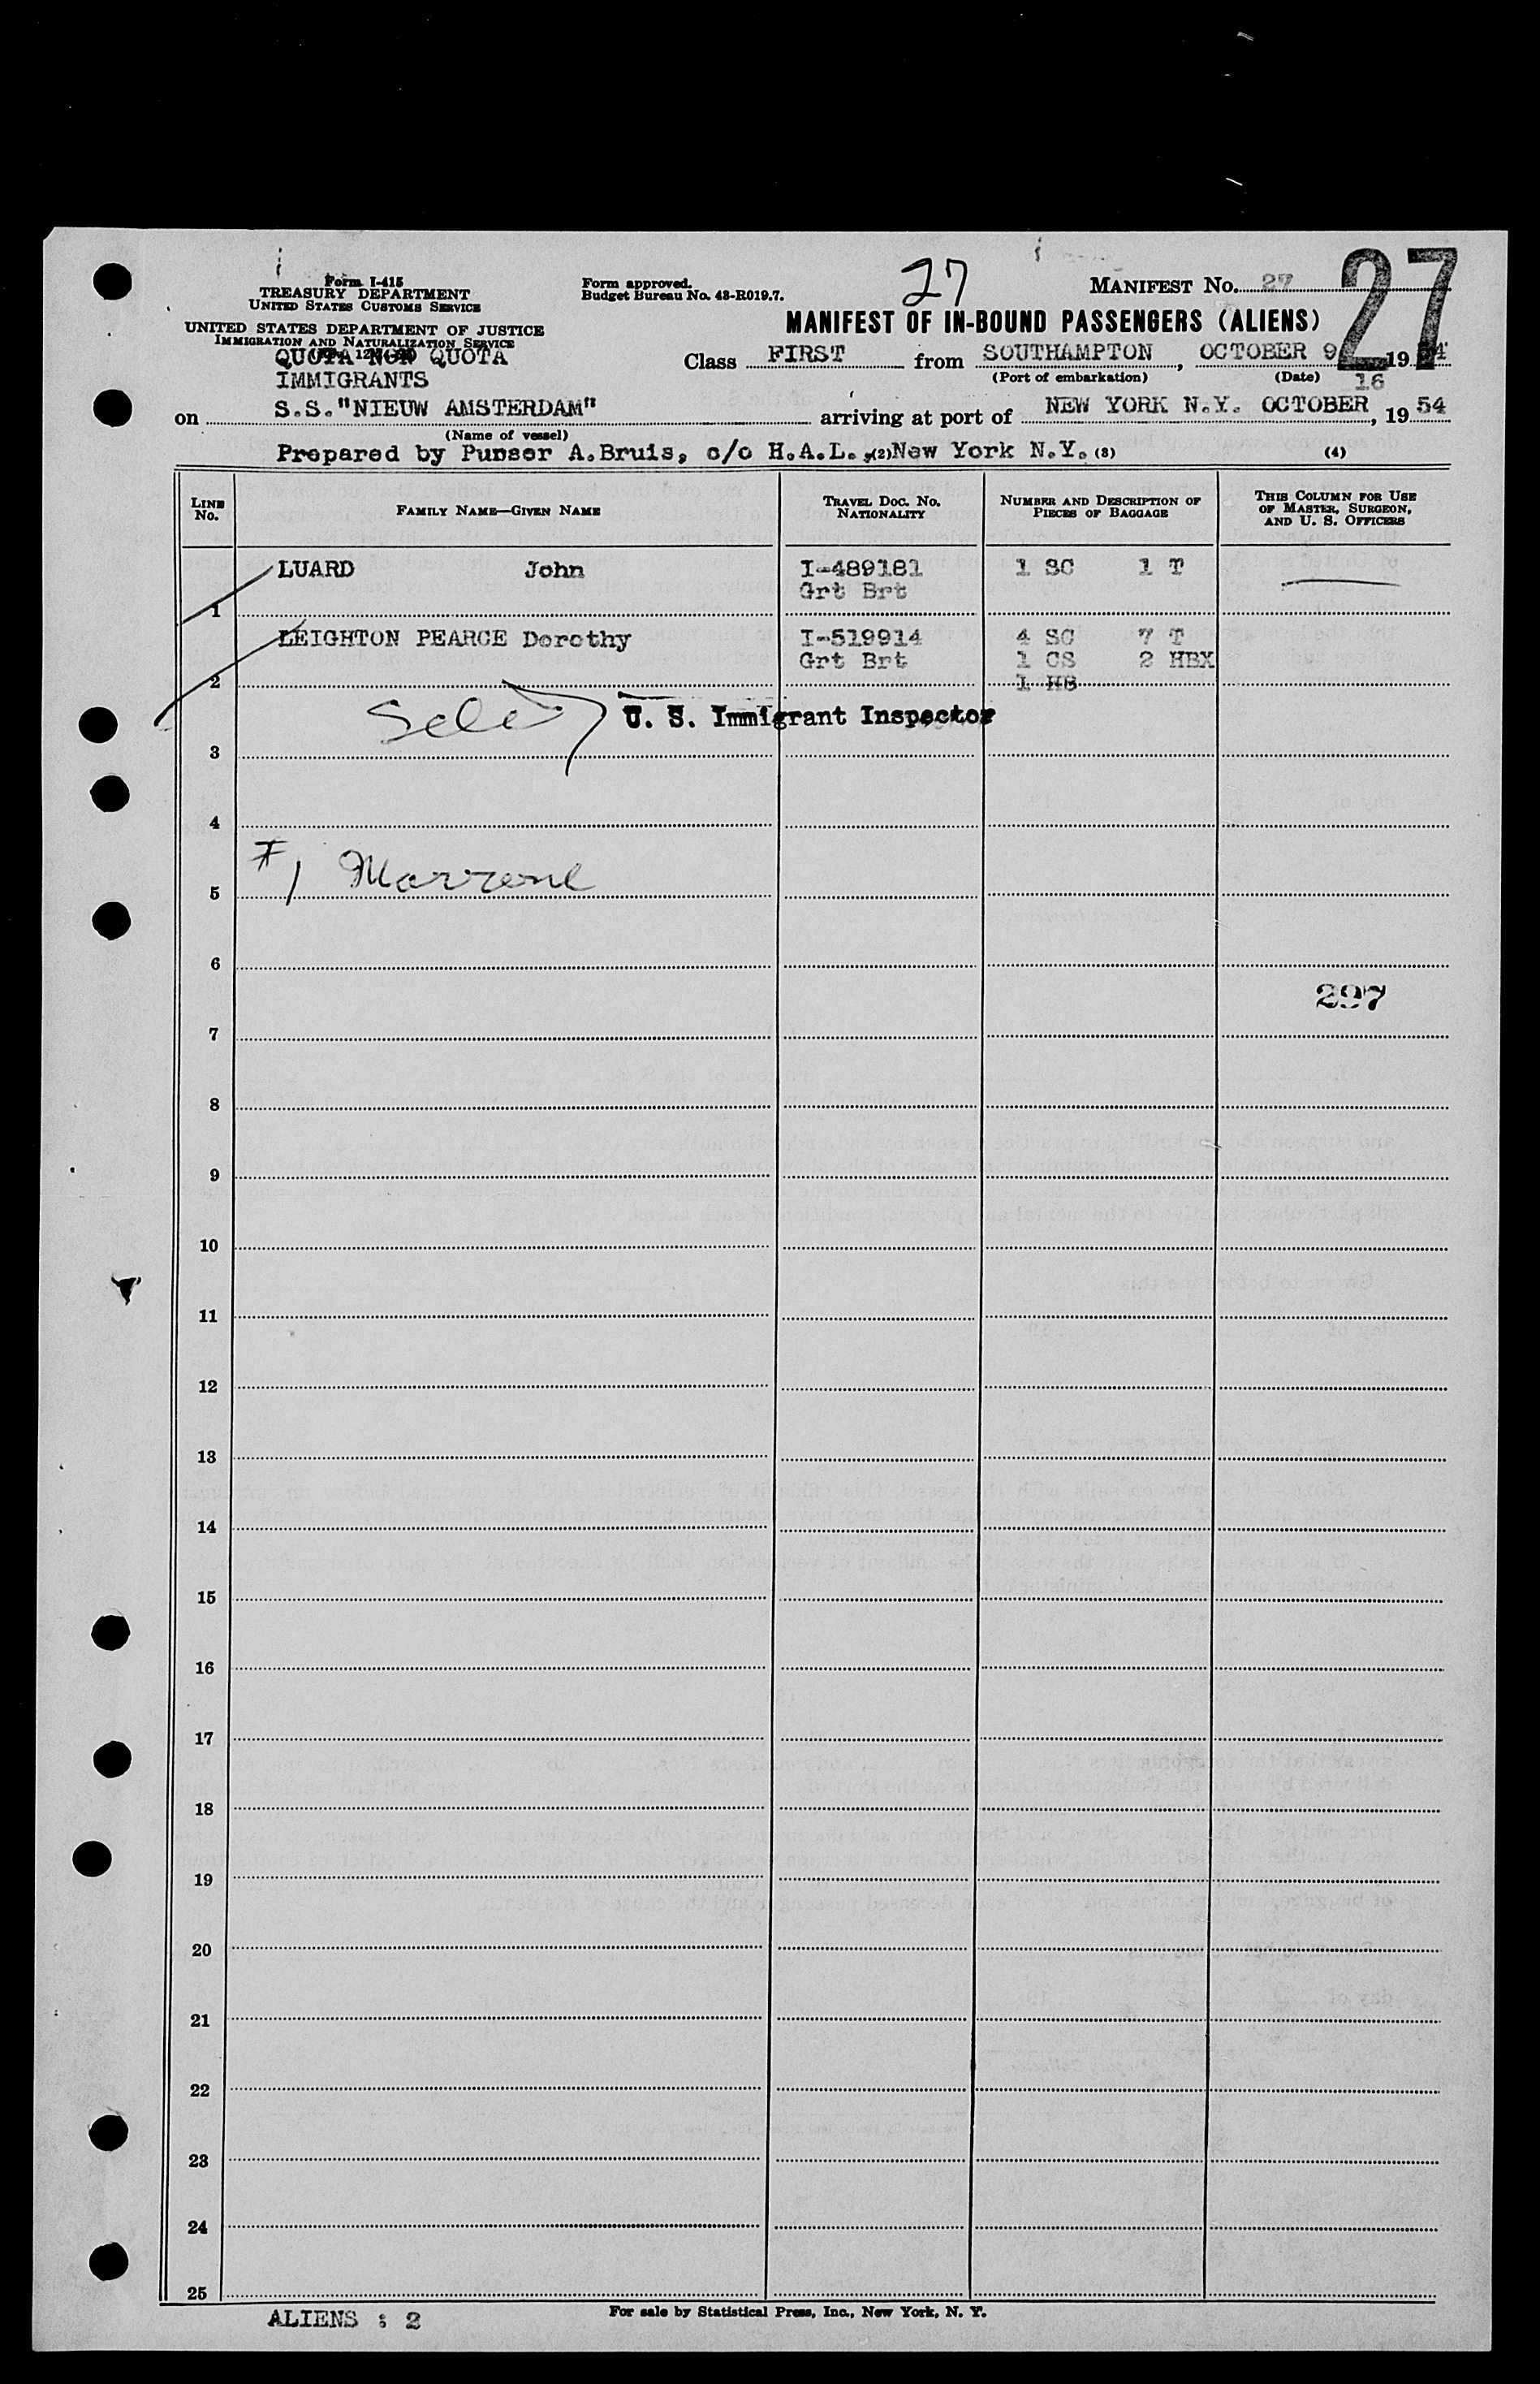 27
Form I-415
TREASURY DEPARTMENT
UNITED STATES CUSTOMS SERVICE
UNITED STATES DEPARTMENT OF JUSTICE
IMMIGRATION AND NATURALIZATION SERVICE
Form approved.
Budget Bureau No. 43-R019.7.
MANIFEST No. 27
27
MANIFEST OF IN-BOUND PASSENGERS (ALIENS)
QUOTA NON QUOTA
IMMIGRANTS
Class FIRST from SOUTHAMPTON, OCTOBER 9 1954
(Port of embarkation) (Date)
on S.S."NIEUW AMSTERDAM" arriving at port of NEW YORK N.Y. OCTOBER 16, 1954
(Name of vessel)
Prepared by Purser A.Bruis, c/o H.A.L., (2) New York N.Y. (3) (4)
LINE No. FAMILY NAME—GIVEN NAME TRAVEL DOC. No. NATIONALITY NUMBER AND DESCRIPTION OF PIECES OF BAGGAGE THIS COLUMN FOR USE OF MASTER, SURGEON, AND U. S. OFFICERS
LUARD John I-489181 1 SC 1 T
1 Grt Brt
LEIGHTON PEARCE Dorothy I-519914 4 SC 7 T
Grt Brt 1 CS 2 HBX
2 1 HB
U. S. Immigrant Inspector
3
4
5 #1 Marrone
6
297
7
8
9
10
11
12
13
14
15
16
17
18
19
20
21
22
23
24
25
ALIENS : 2
For sale by Statistical Press, Inc., New York, N. Y.